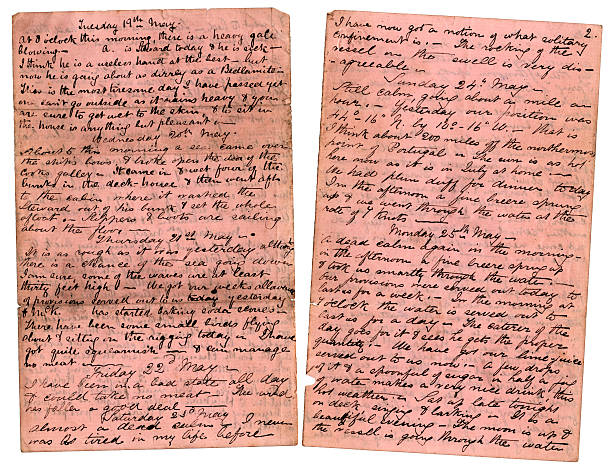 Tuesday 19th May.
At 8 oclock this morning there is a heavy gale
blowing. — A. is Steward today & he is sick —
I think he is a useless hand at the best — but
now he is going about as dirrly as a Bedlamite —
This is the most tiresome day I have passed yet
one can't go outside as it rains heavy & you
are sure to get wet to the skin & to sit in
the house is anything but pleasant. —
Wednesday 20th May.
About 10 this morning a sea came over
the ship's bows & broke open the door of the
Cook's galley — It came in & wet four of the
bunks in the deck-house & then went aft
to the cabin where it washed the
Steward out of his bunk & set the whole
afloat — Slippers & boots are sailing
about the floor —
Thursday 21st May —
It is as rough as it was yesterday altho'
there is a chance of the sea going down
I am sure some of the waves are at least
thirty feet high — We got our week's allowance
of provisions served out to us today yesterday
& has started baking soda scones —
There have been some small birds flying
about & sitting on the rigging today — I have
got quite squeamish — & I can manage
no meat
Friday 22nd May —
I have been in a bad state all day
& could take no meat — The wind
has fallen a good deal —
Saturday 23rd May
almost a dead calm — I never
was as tired in my life before
2.
I have now got a notion of what solitary
confinement is. — The rocking of the
vessel on the swell is very dis-
agreeable —
Sunday 24th May —
Still calm going about a mile an
hour. — Yesterday our position was
44° 16' N. by 16° 16' W. That is
I think about 200 miles off the northermost
point of Portugal — The sun is as hot
here now as it is in July at home —
We had plum duff for dinner today
In the afternoon a fine breeze sprung
up & we went through the water at the
rate of 7 knots —
Monday 25th May —
A dead calm again in the morning —
in the afternoon a fine breeze sprung up
& took us smartly through the water. —
Our provisions were served out today to
last us for a week. — In the morning at
oclock the water is served out to
last us for a day — The caterer of the
day goes for it & sees he gets the proper
quantity. — We have got our lime-juice
served out to us now — a few drops
of it & a spoonful of sugar in half a pint
of water makes a very nice drink this
hot weather. — Sat up late tonight
on deck singing & larking — It is a
beautiful evening — The moon is up &
the vessel is going through the water